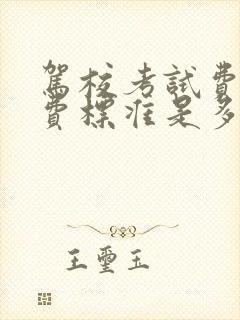 駕校考試費
費標准是多
王璽玉